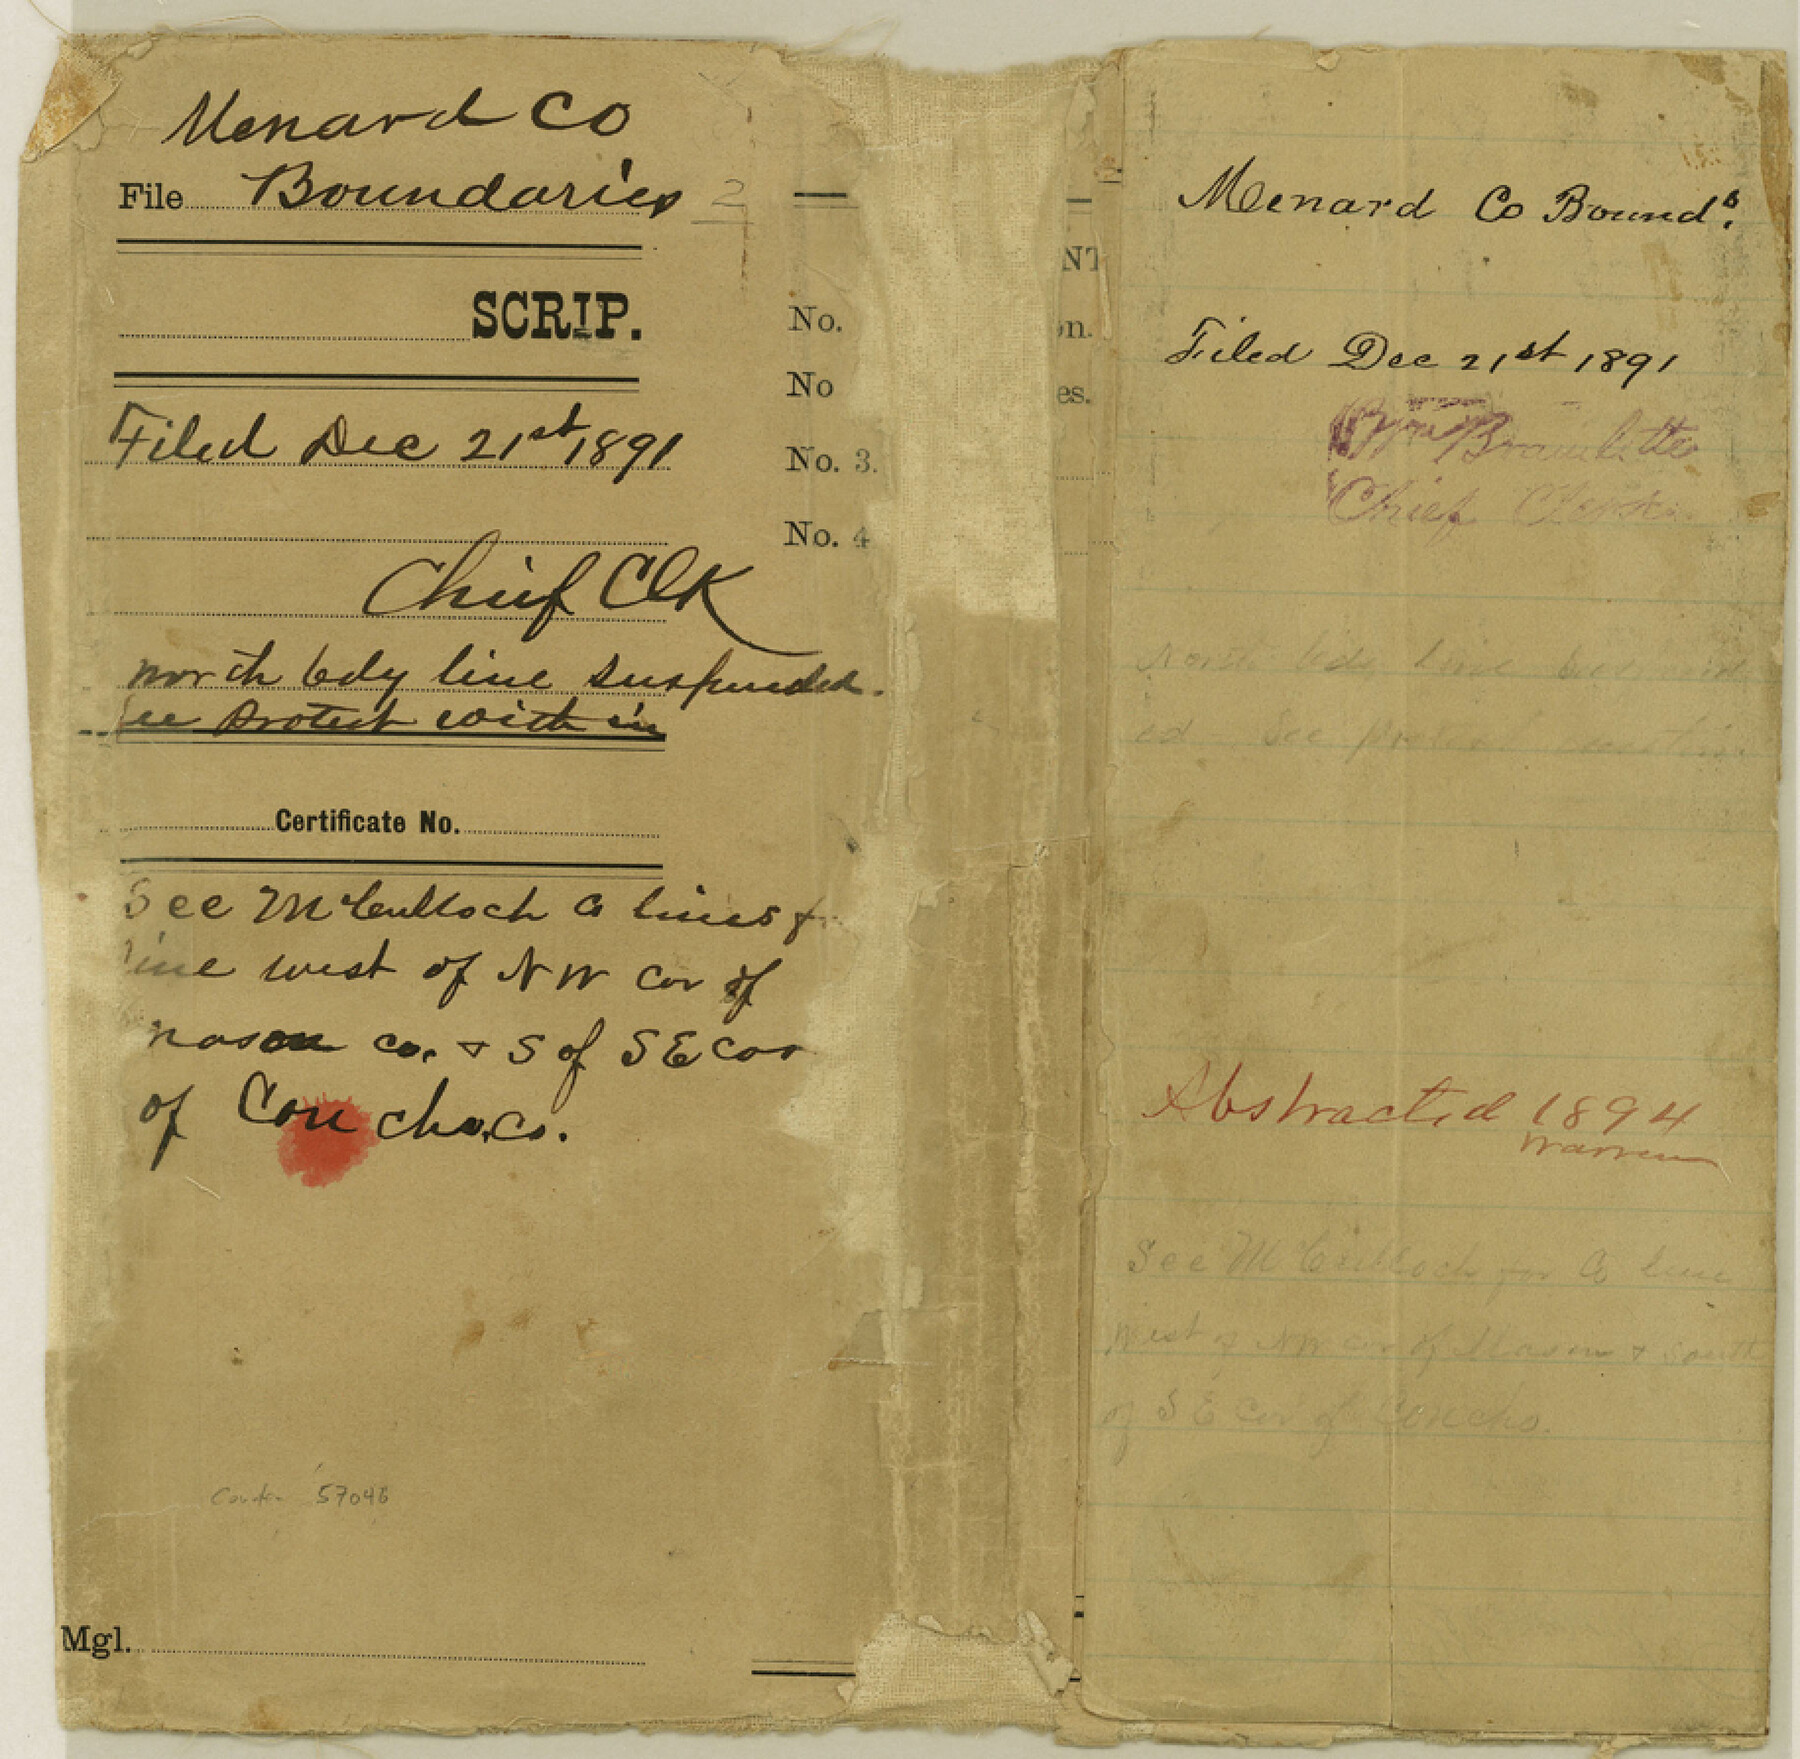 Menard Co
File Boundaries 2
SCRIP.
Filed Dec 21st 1891
Chief Clk
north bdy line suspended.
see protest with in
Certificate No.
See McCulloch Co lines f
line west of NW Cor of
mason co. & S of SE Cor
of Concho Co.
57046
Mgl.
No.
No
No. 3.
No. 4
NT
on.
es.
Menard Co Bounds.
Filed Dec 21st 1891
Bramlette
Chief Clerk
North bdy line
ed See protest
Abstracted 1894
Warren
See McCulloch for Co line
West of NW cor of Mason & South
of SE cor of Concho.